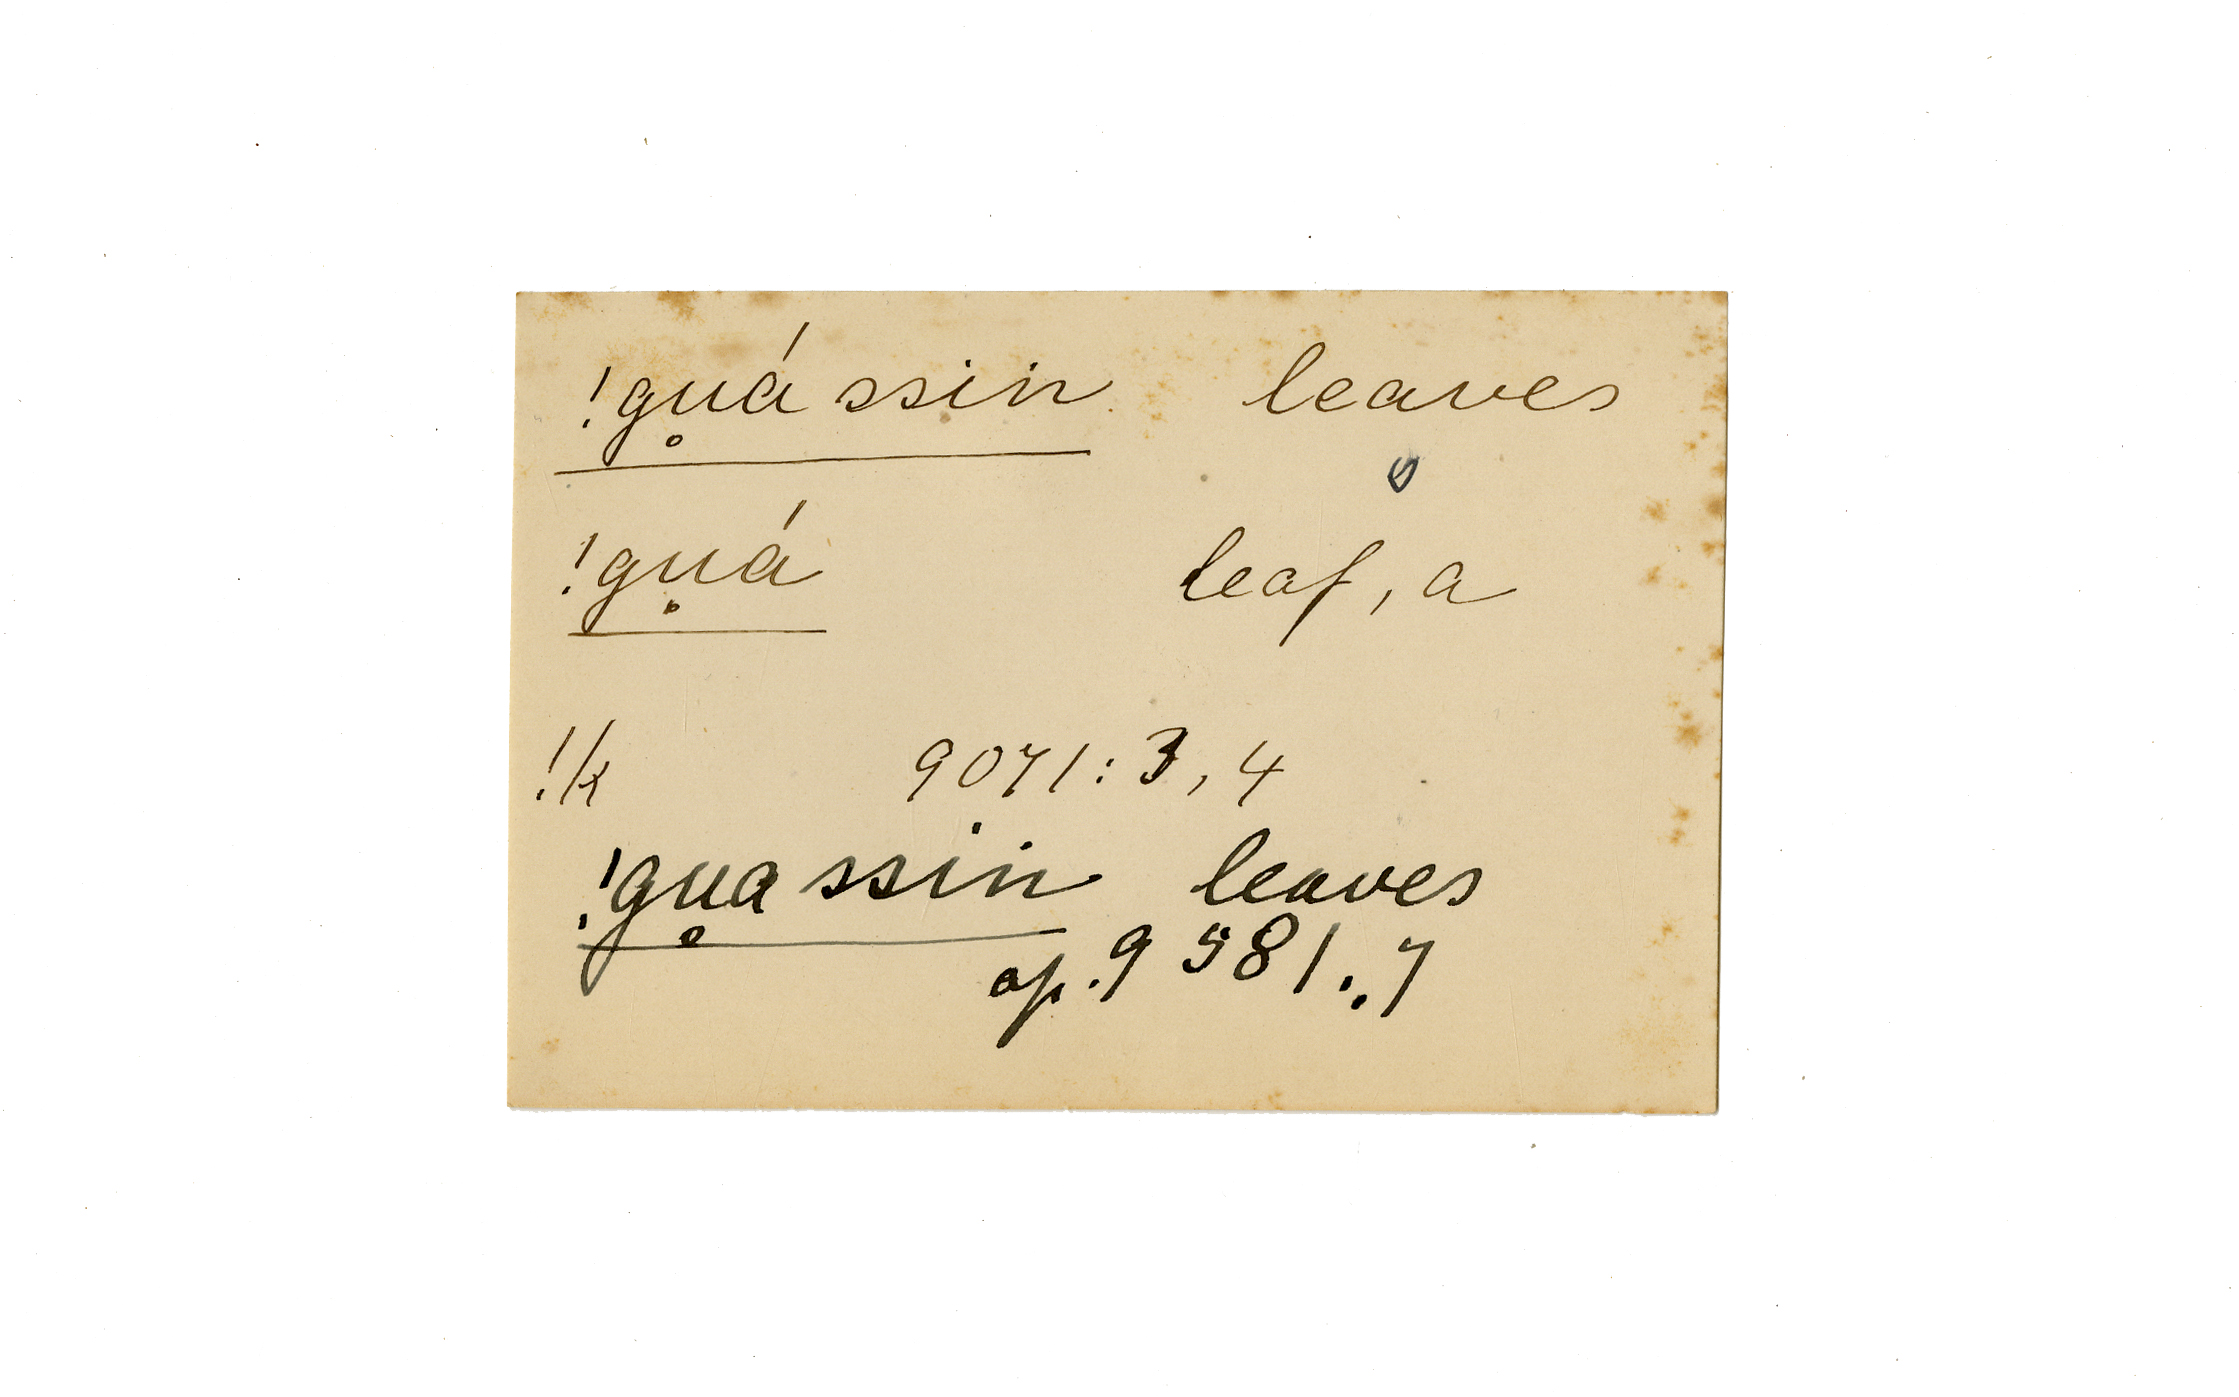 !gu̥á ssin leaves
!gu̥á leaf, a
!k 9071:3, 4
!gu̥a ssin leaves
op. 9581.:7